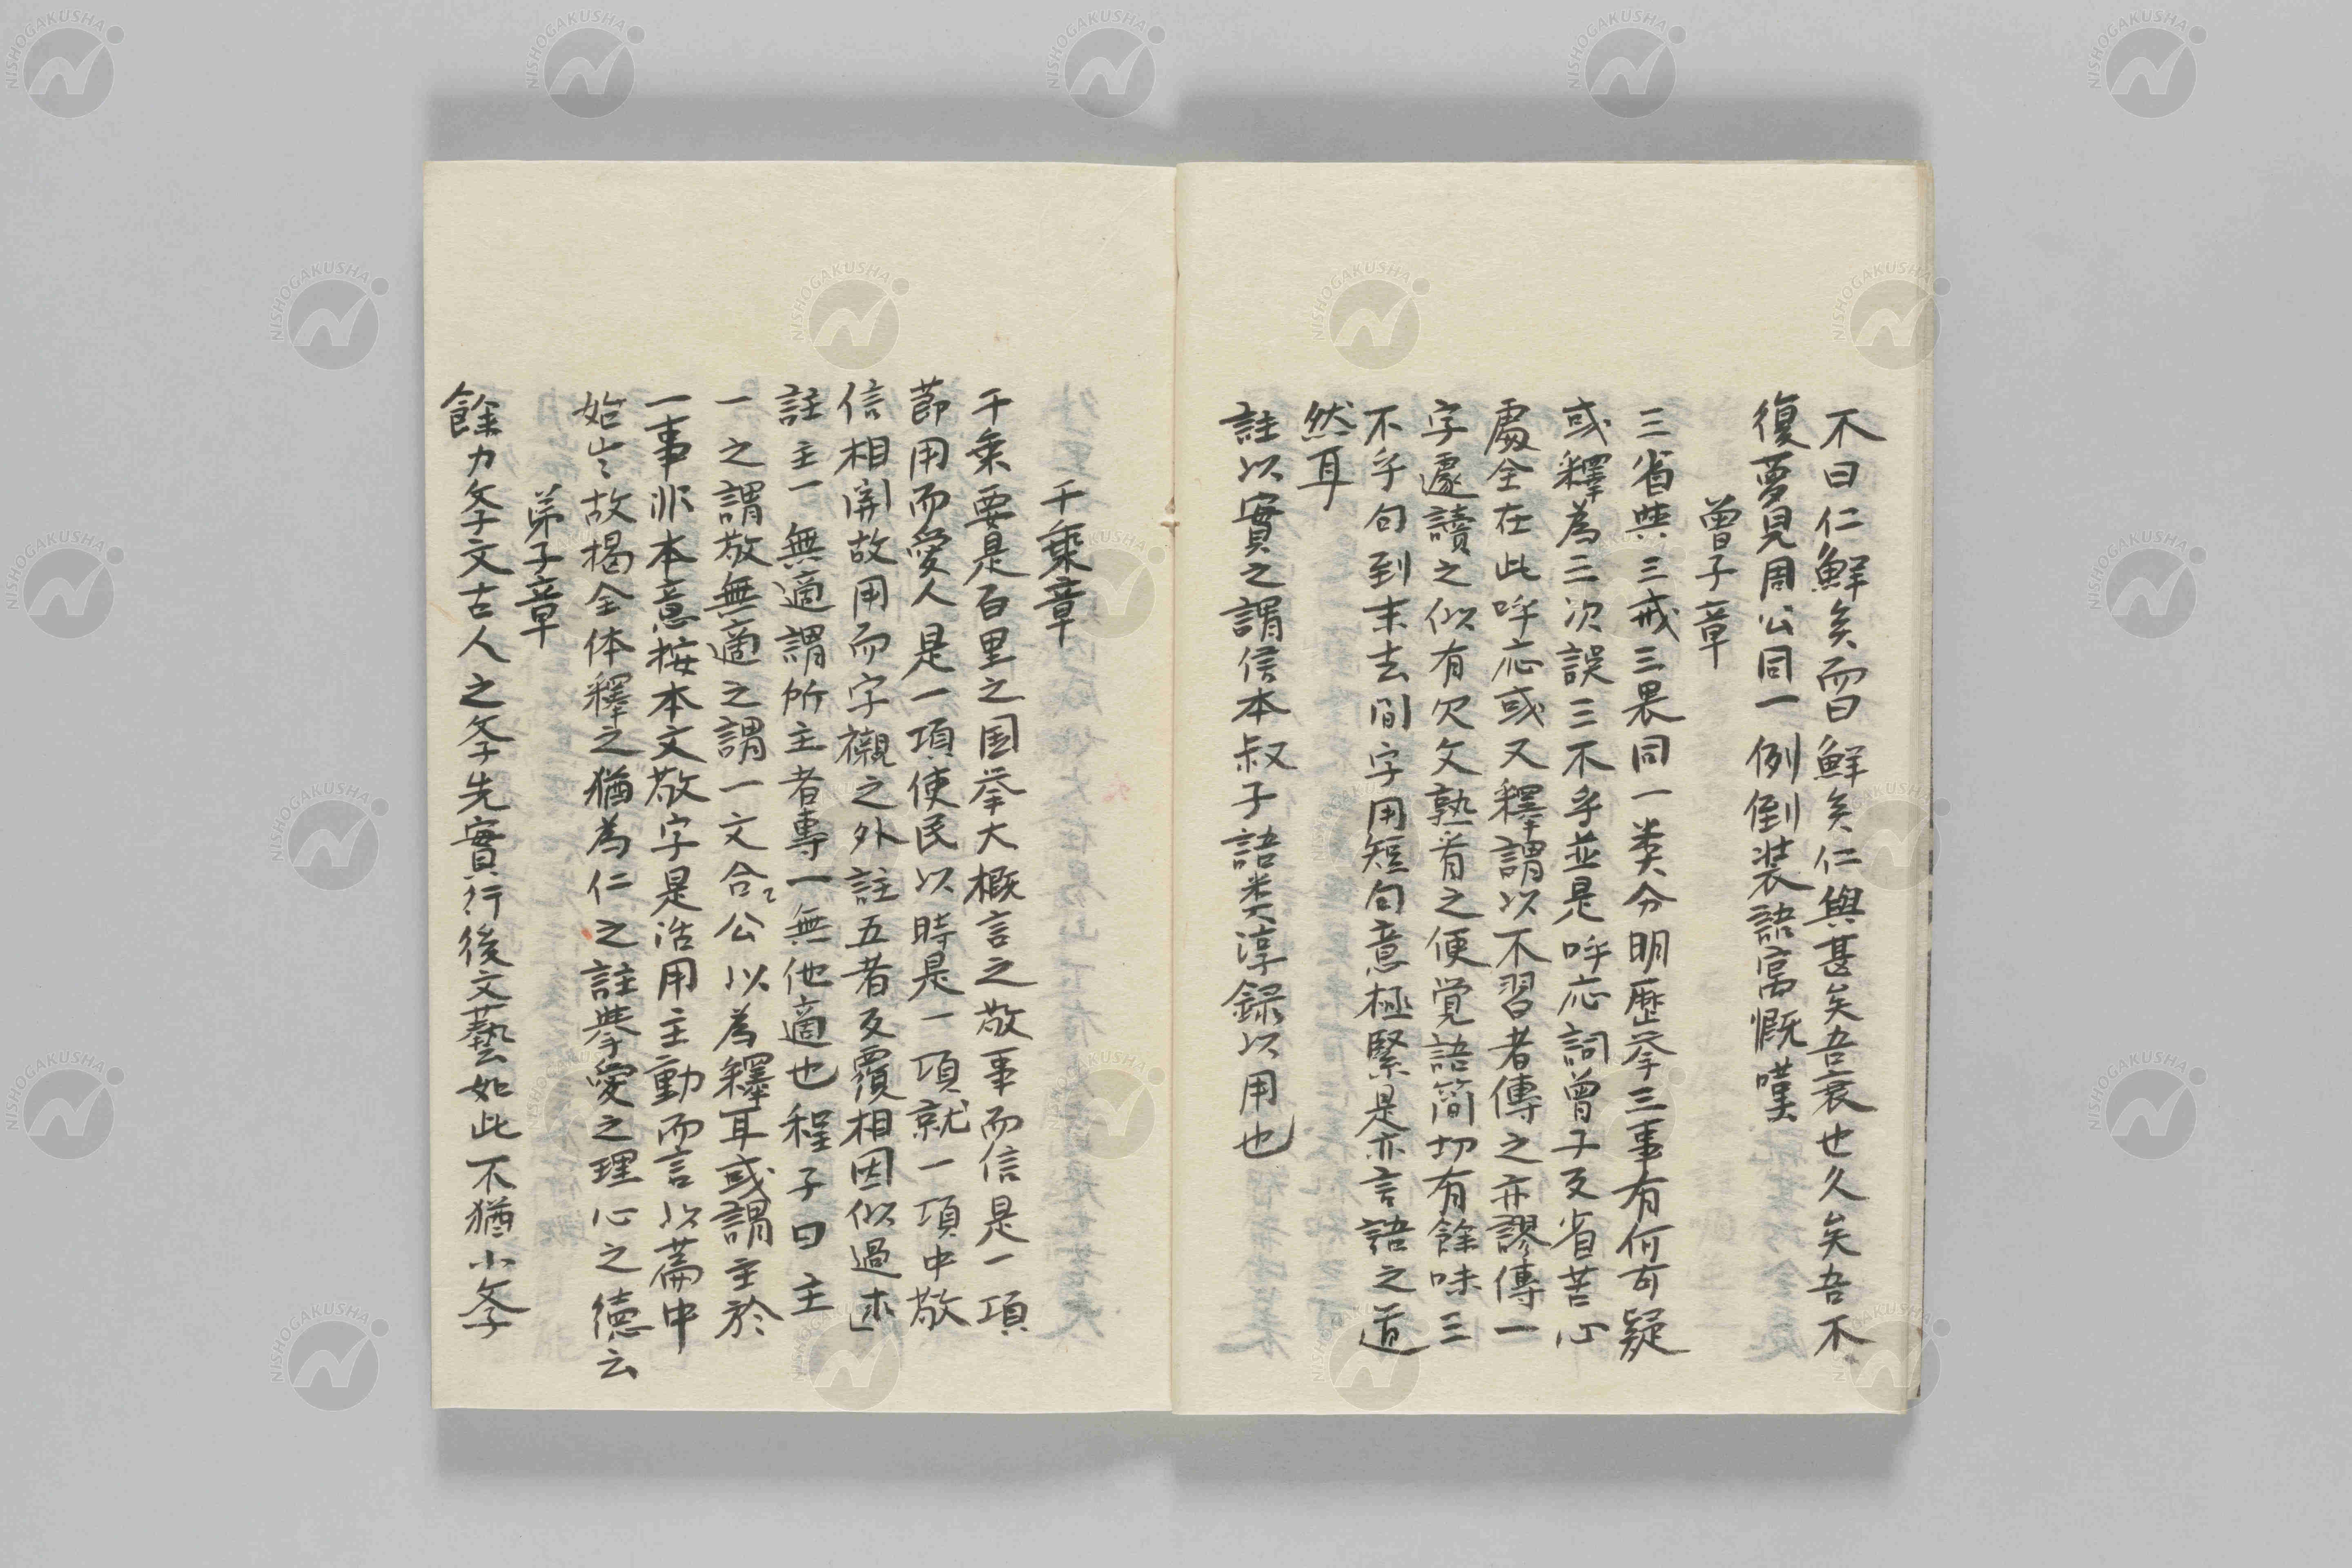 不曰仁鮮矣而曰鮮矣仁與甚矣吾衰也久矣吾不
復夢見周公同一例倒装語寓慨嘆
曽子章
三省與三戒三畏同一类分明歴挙三事有何可疑
或釋為三次誤三不乎並是呼応詞曽子反省苦心
處全在此呼応或又釋謂以不習者傳之亦謬傳一
字遽讀之似有欠文熟看之便覚語簡切有餘味三
不乎句到末去間字用短句意極緊是亦言語之道
然耳
註以實之謂信本叔子語类淳録以用也
千乗章
千乗要是百里之国挙大概言之敬事而信是一項
節用而愛人是一項使民以時是一項就一項中敬
信相関故用而字襯之外註五者反覆相因似過求
註主一無適謂所主者專一無他適也程子曰主
一之謂敬無適之謂一文合公以為釋耳或謂主於
一事非本意按本文敬字是活用主動而言以蓋中
始々故掲全体釋之猶為仁之註挙愛之理心之徳云
弟子章
餘力斈文古人之斈先實行後文藝如此不猶小斈
NISHOGAKUSHA